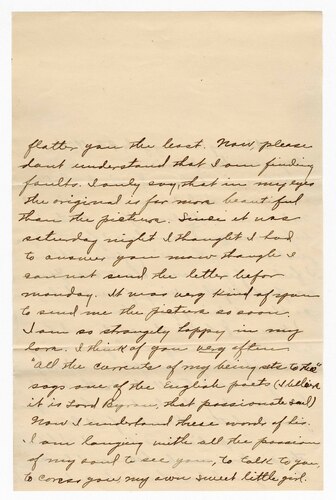 flatter you the least. Now, please
dont understand that I am finding
faults. I only say, that in my eyes
the original is far more beautiful
than the picture. Since it was
saturday night I thought I had
to answer you now though I
cannot send the letter befor
monday. It was very kind of you
to send me the picture so soon.
I am so strangely happy in my
love. I think of you very often.
"All the currents of my being set to thee"
says one of the English poets (I believe
it is Lord Byron, that passionate soul)
Now I understand these words of his.
I am longing with all the passion
of my soul to see you, to talk to you
to caress you my own sweet little girl.